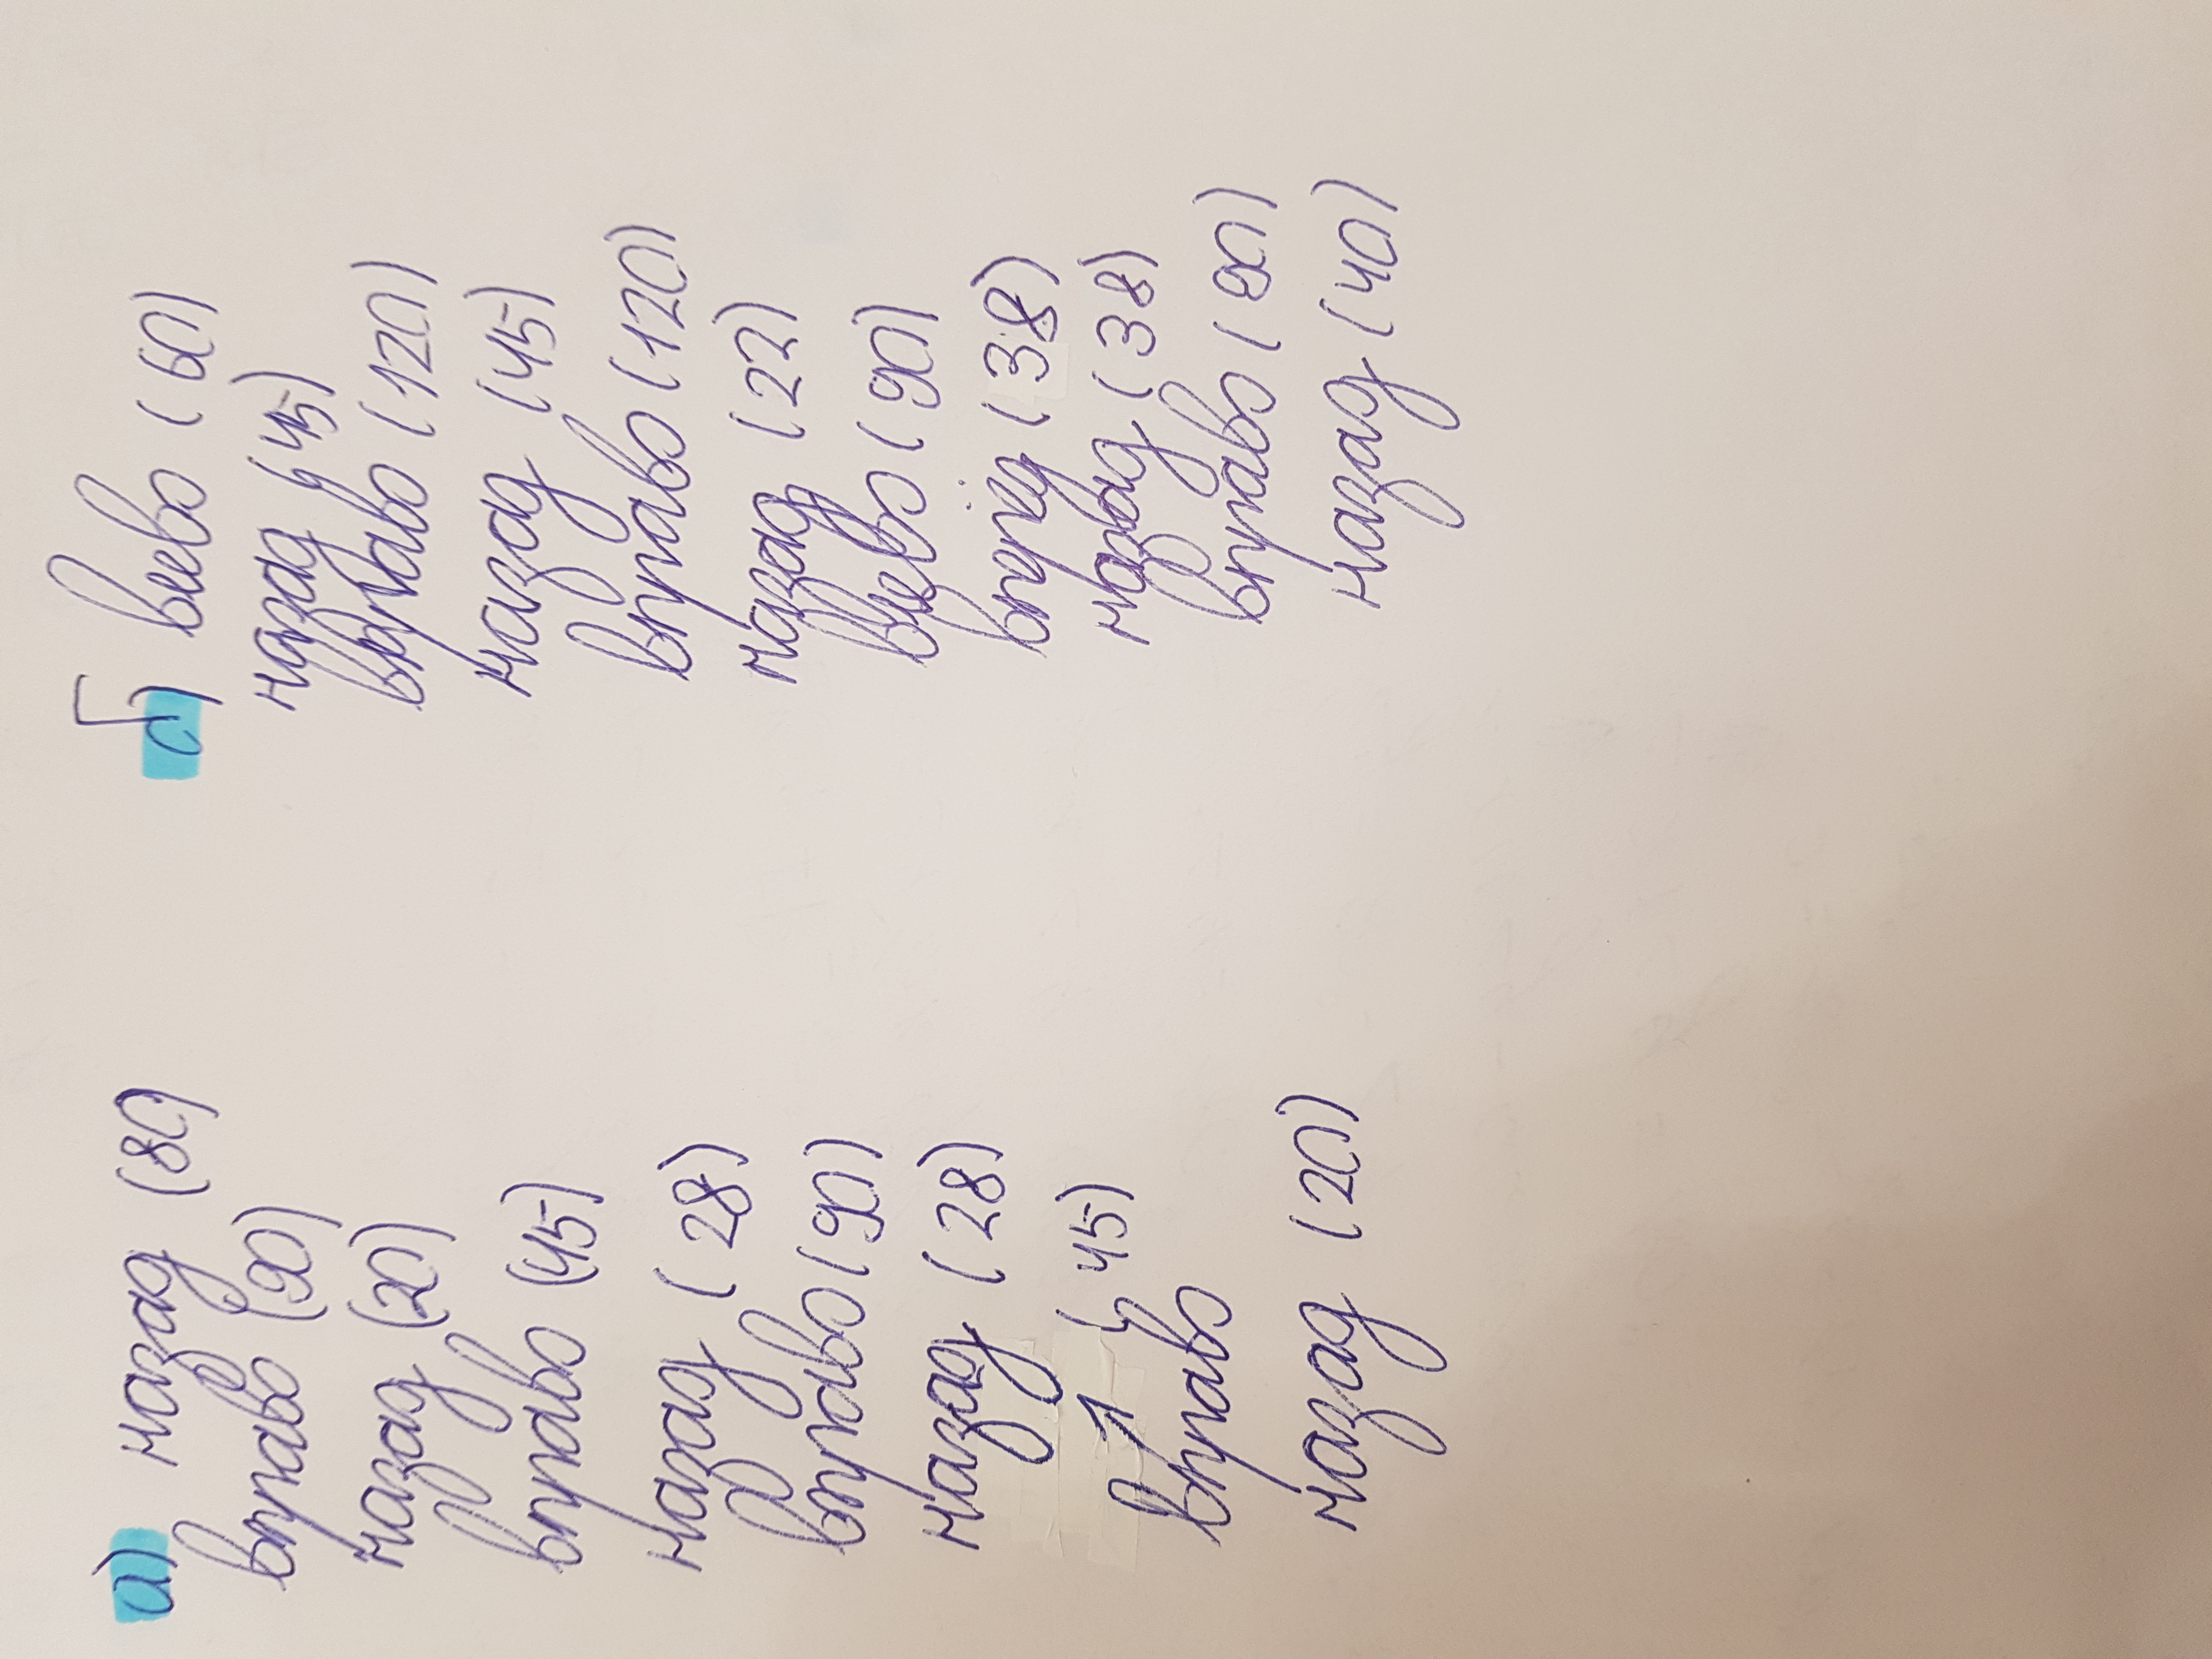 а) назад (80)
вправо (90)
назад (20)
вправо (45)
назад (28)
вправо (90)
назад (28)
вправо (45)
назад (20)
б) влево (60)
назад (45)
вправо (120)
назад (45)
вправо (120)
назад (22)
влево (90)
вперёд (38)
назад (38)
вправо (90)
назад (40)